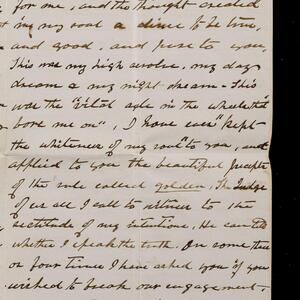 for me, and the thought created
in my soul a desire to be true,
and good, and pure to you,
This was my high resolve, my day
dream & my night dream - This
was the "vital axle in the wheels that
bore me on", I have ever "kept
the whiteness of my soul" to you, and
applied to you the beautiful precepts
of the rule called golden, The Judge
of us all I call to witness to the
rectitude of my intentions, He can tell
whether I speak the truth. On some, three
or four times I have asked you if you
wished to break our engagement.